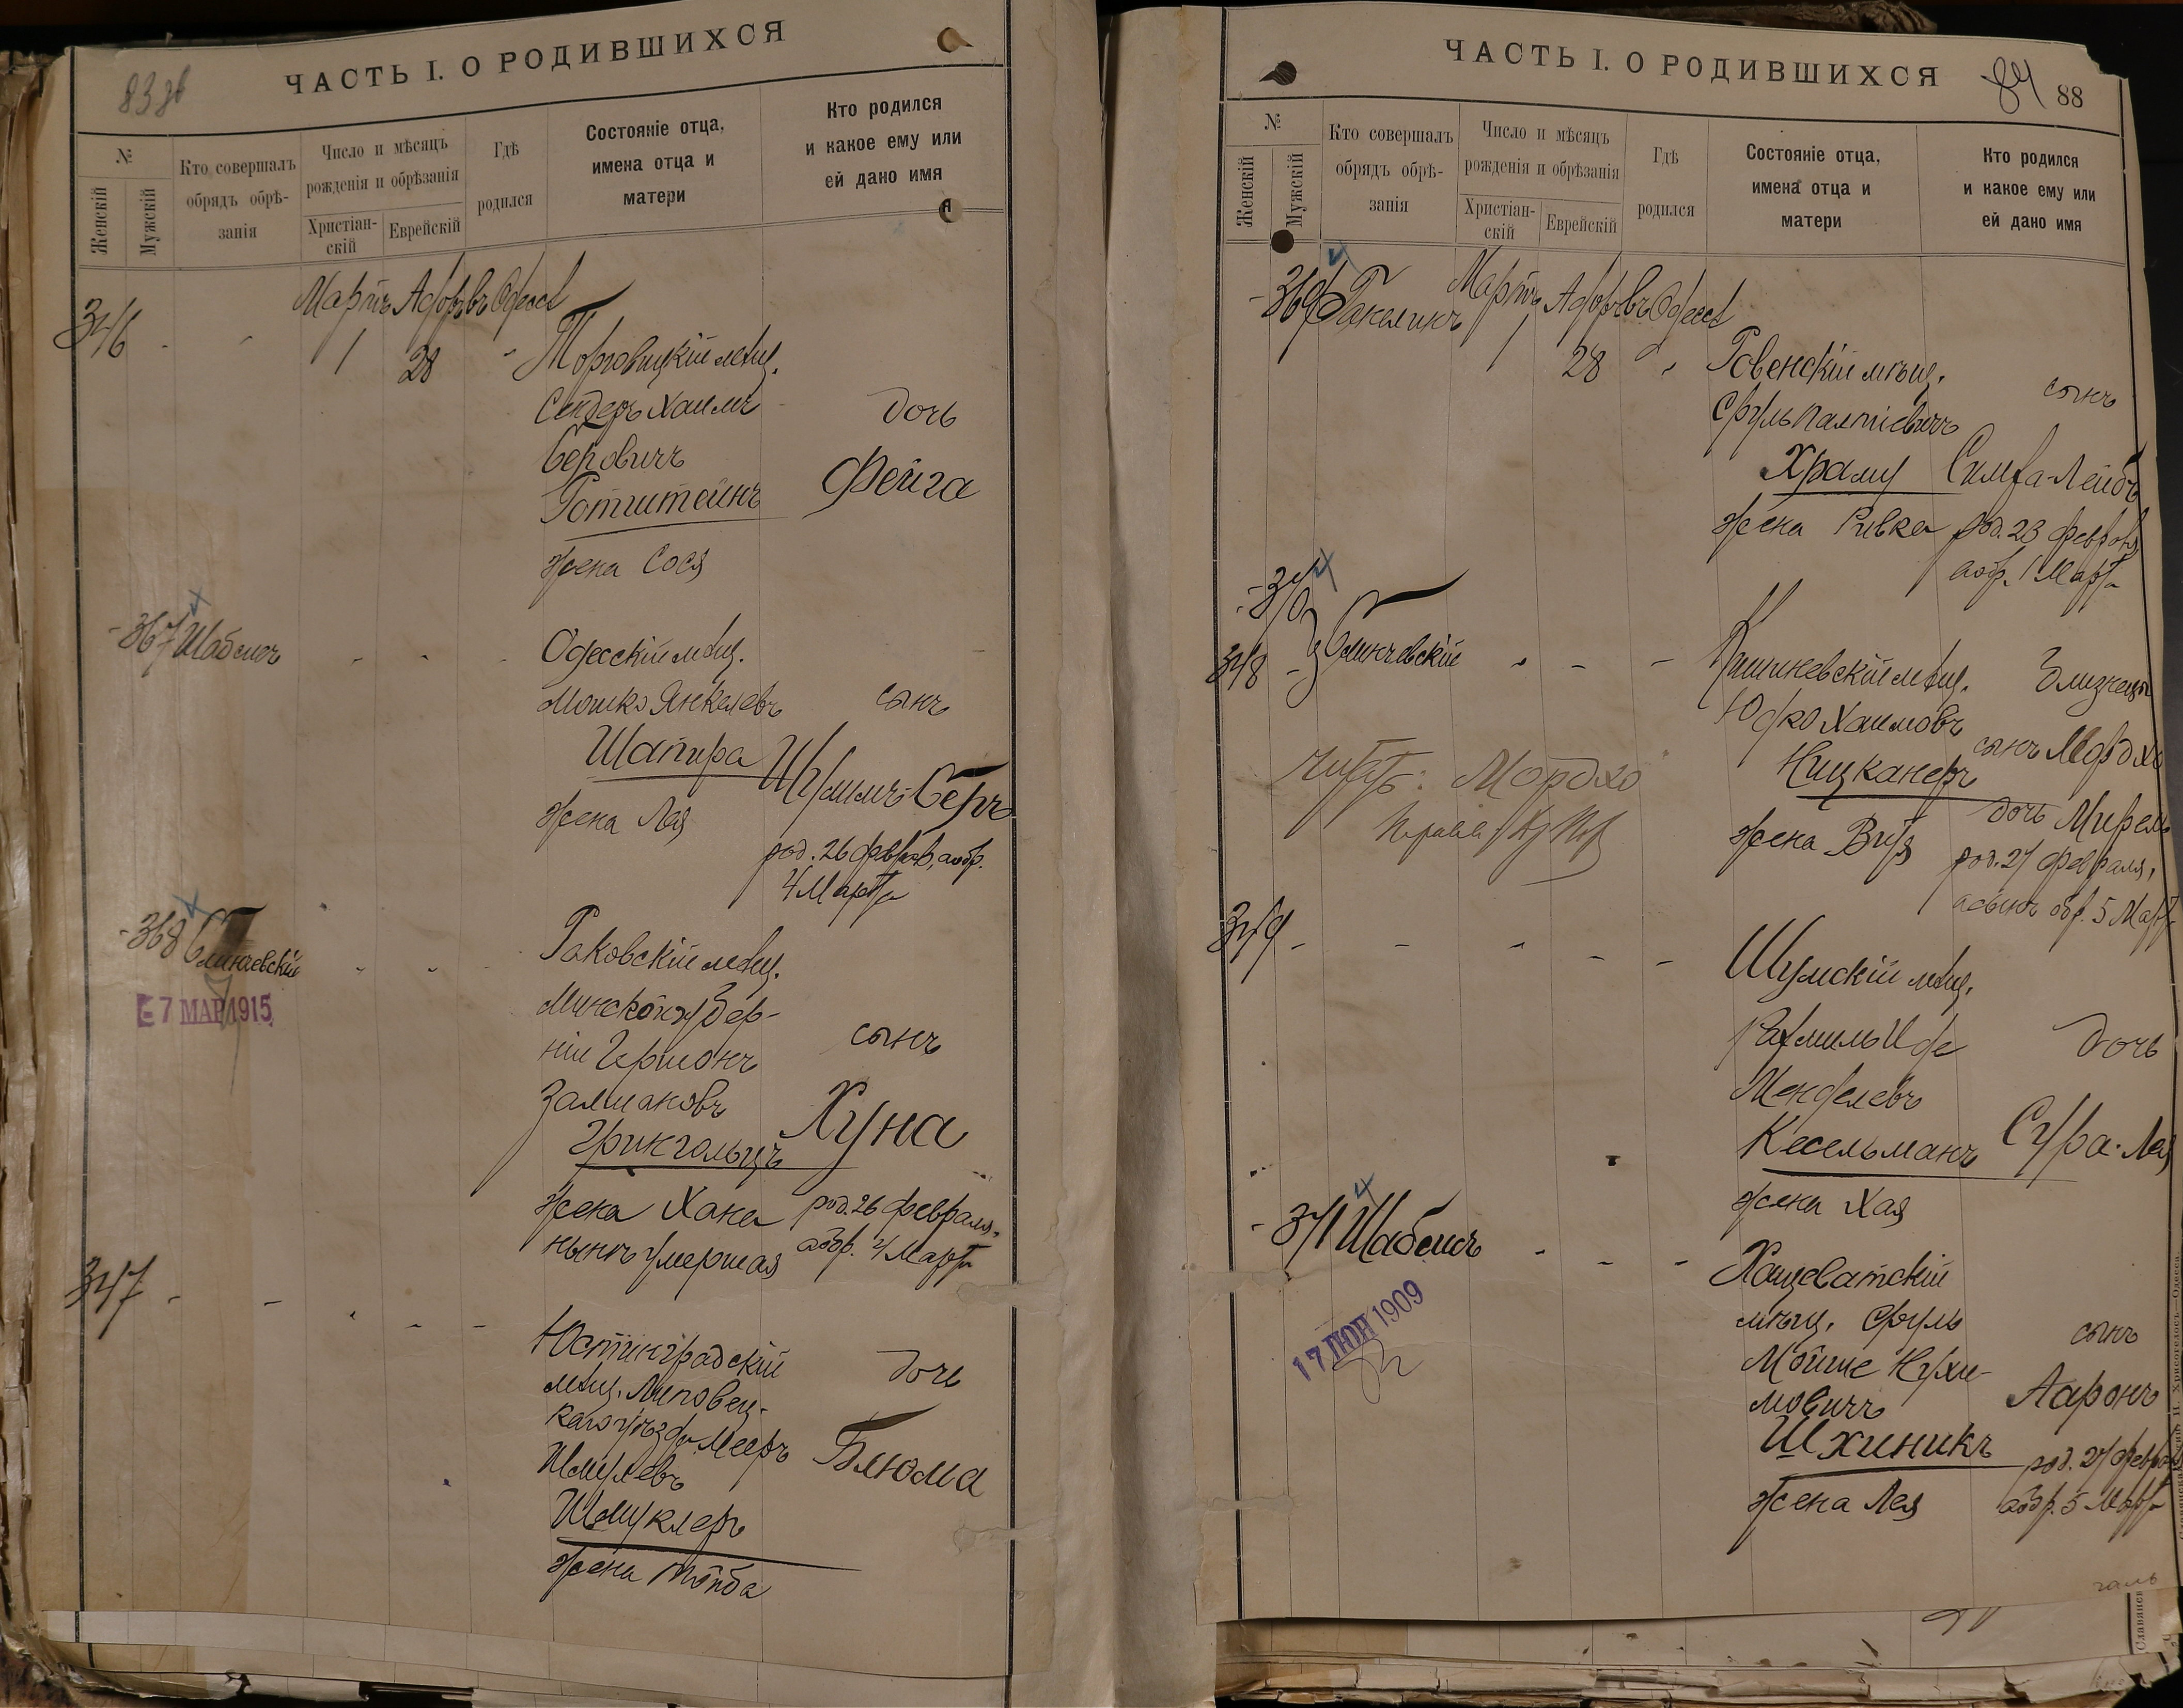 83 об
ЧАСТЬ I. О РОДИВШИХСЯ
№
Женскій
Мужскій
Кто совершалъ
обрядъ обрѣ-
занія
Число и мѣсяцъ
рожденія и обрѣзанія
Христіан-
скій
Еврейскій
Гдѣ
родился
Состояніе отца,
имена отца и
матери
Кто родился
и какое ему или
ей дано имя
Мартъ Адоръ въ Одессѣ
346 1 28 Торговицкій мѣщ.
Сендеръ Хаимъ
Беровичъ
Ротштейнъ
жена Сося
дочь
Фейга
367 Шабсисъ
Одесскій мѣщ.
Мошко Янкелевъ
Шапира
жена Лея
сынъ
Шулимъ-Беръ
род. 26 февраля, а обр.
4 Марта
368
7 МАР 1915
Раковскій мѣщ.
Минской губер-
ніи Гершонъ
Залмановъ
Грингольцъ
жена Хана
нынѣ умершая
сынъ
Хуна
род. 26 февраля,
а обр. 4 Марта
347
Юстинградскій
мѣщ. Липовец-
каго уѣзда Мееръ
Шмулевъ
Шмуклеръ
жена Тойба
дочь
Блюма
ЧАСТЬ I. О РОДИВШИХСЯ
84 88
№
Женскій
Мужскій
Кто совершалъ
обрядъ обрѣ-
занія
Число и мѣсяцъ
рожденія и обрѣзанія
Христіан-
скій
Еврейскій
Гдѣ
родился
Состояніе отца,
имена отца и
матери
Кто родился
и какое ему или
ей дано имя
Мартъ Адоръ въ Одессѣ
369 1 28 Ровенскій мѣщ.
Сруль Палтіевичъ
Храму
жена Ривка
сынъ
Симха-Лейбъ
род. 23 февраля
а обр. 1 Марта
370
348
Кишиневскій мѣщ.
Юдко Хаимовъ
Ницканеръ
жена
близнецы
сынъ Мордхо
дочь Мирель
род. 27 февраля,
а сынъ обр. 5 Марта
читать: Мордхо
349
Шумскій мѣщ.
Рахмиль Иде
Менделевъ
Кесельманъ
жена Хая
дочь
Сура-Лея
371 Шабсисъ
17 ІЮН 1909
Хащеватскій
мѣщ. Сруль
Мойше Нухи-
мовичъ
Шхиникъ
жена Лея
сынъ
Ааронъ
род. 27 февраля
а обр. 5 Марта